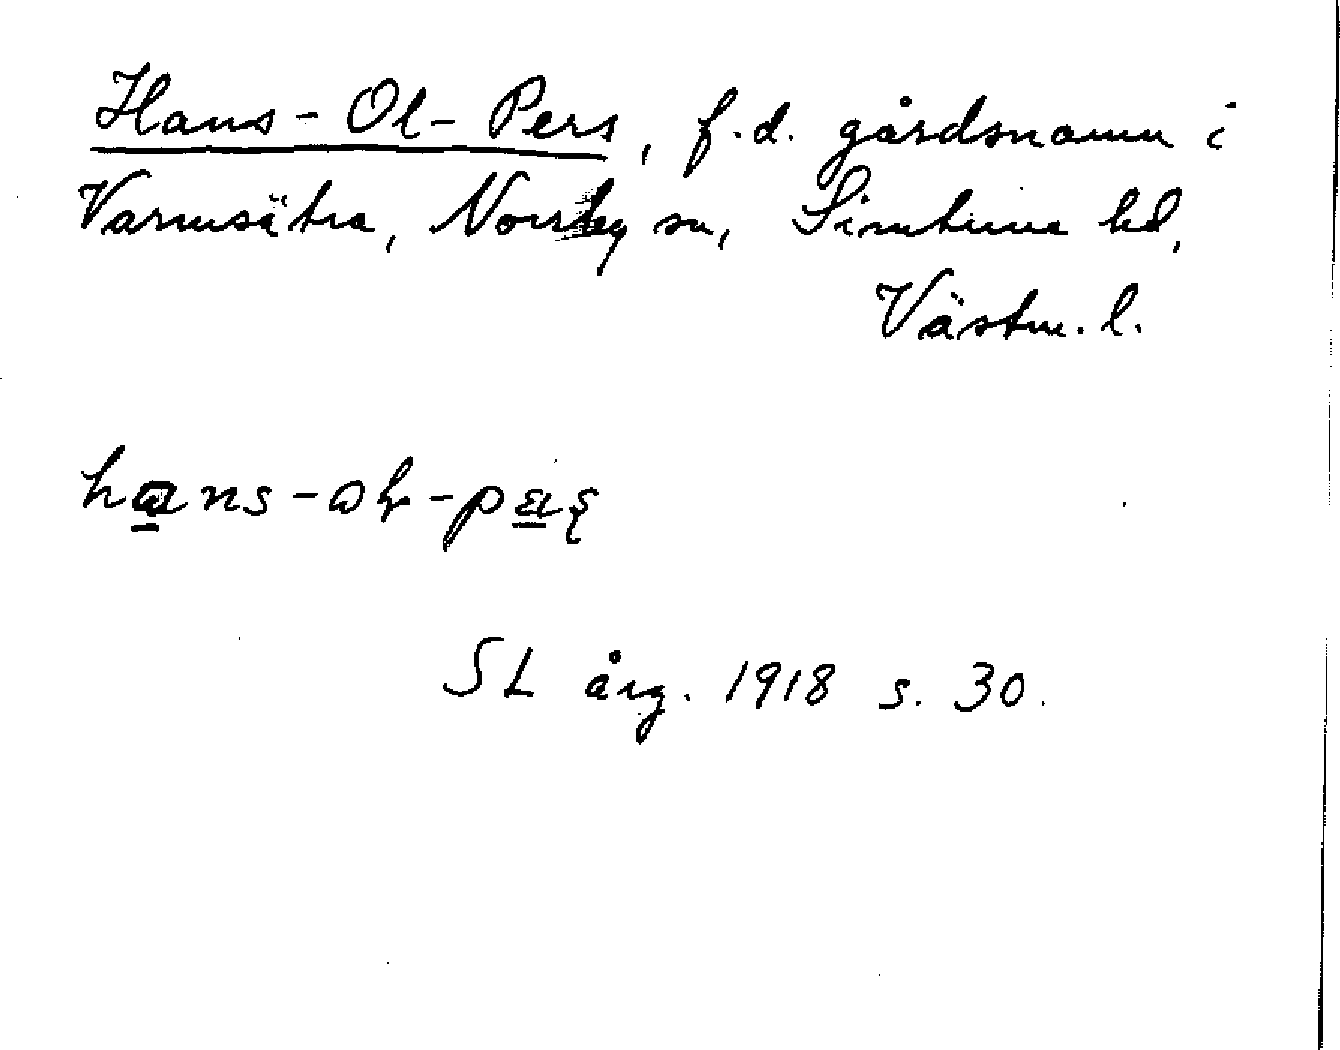 Hans-Ol-Pers, f.d. gårdsnamn i
Varmsätra, Norrby sn, Simtuna hd,
Västm. l.
hans-oɫ-pæʂ
SL årg. 1918 s. 30.